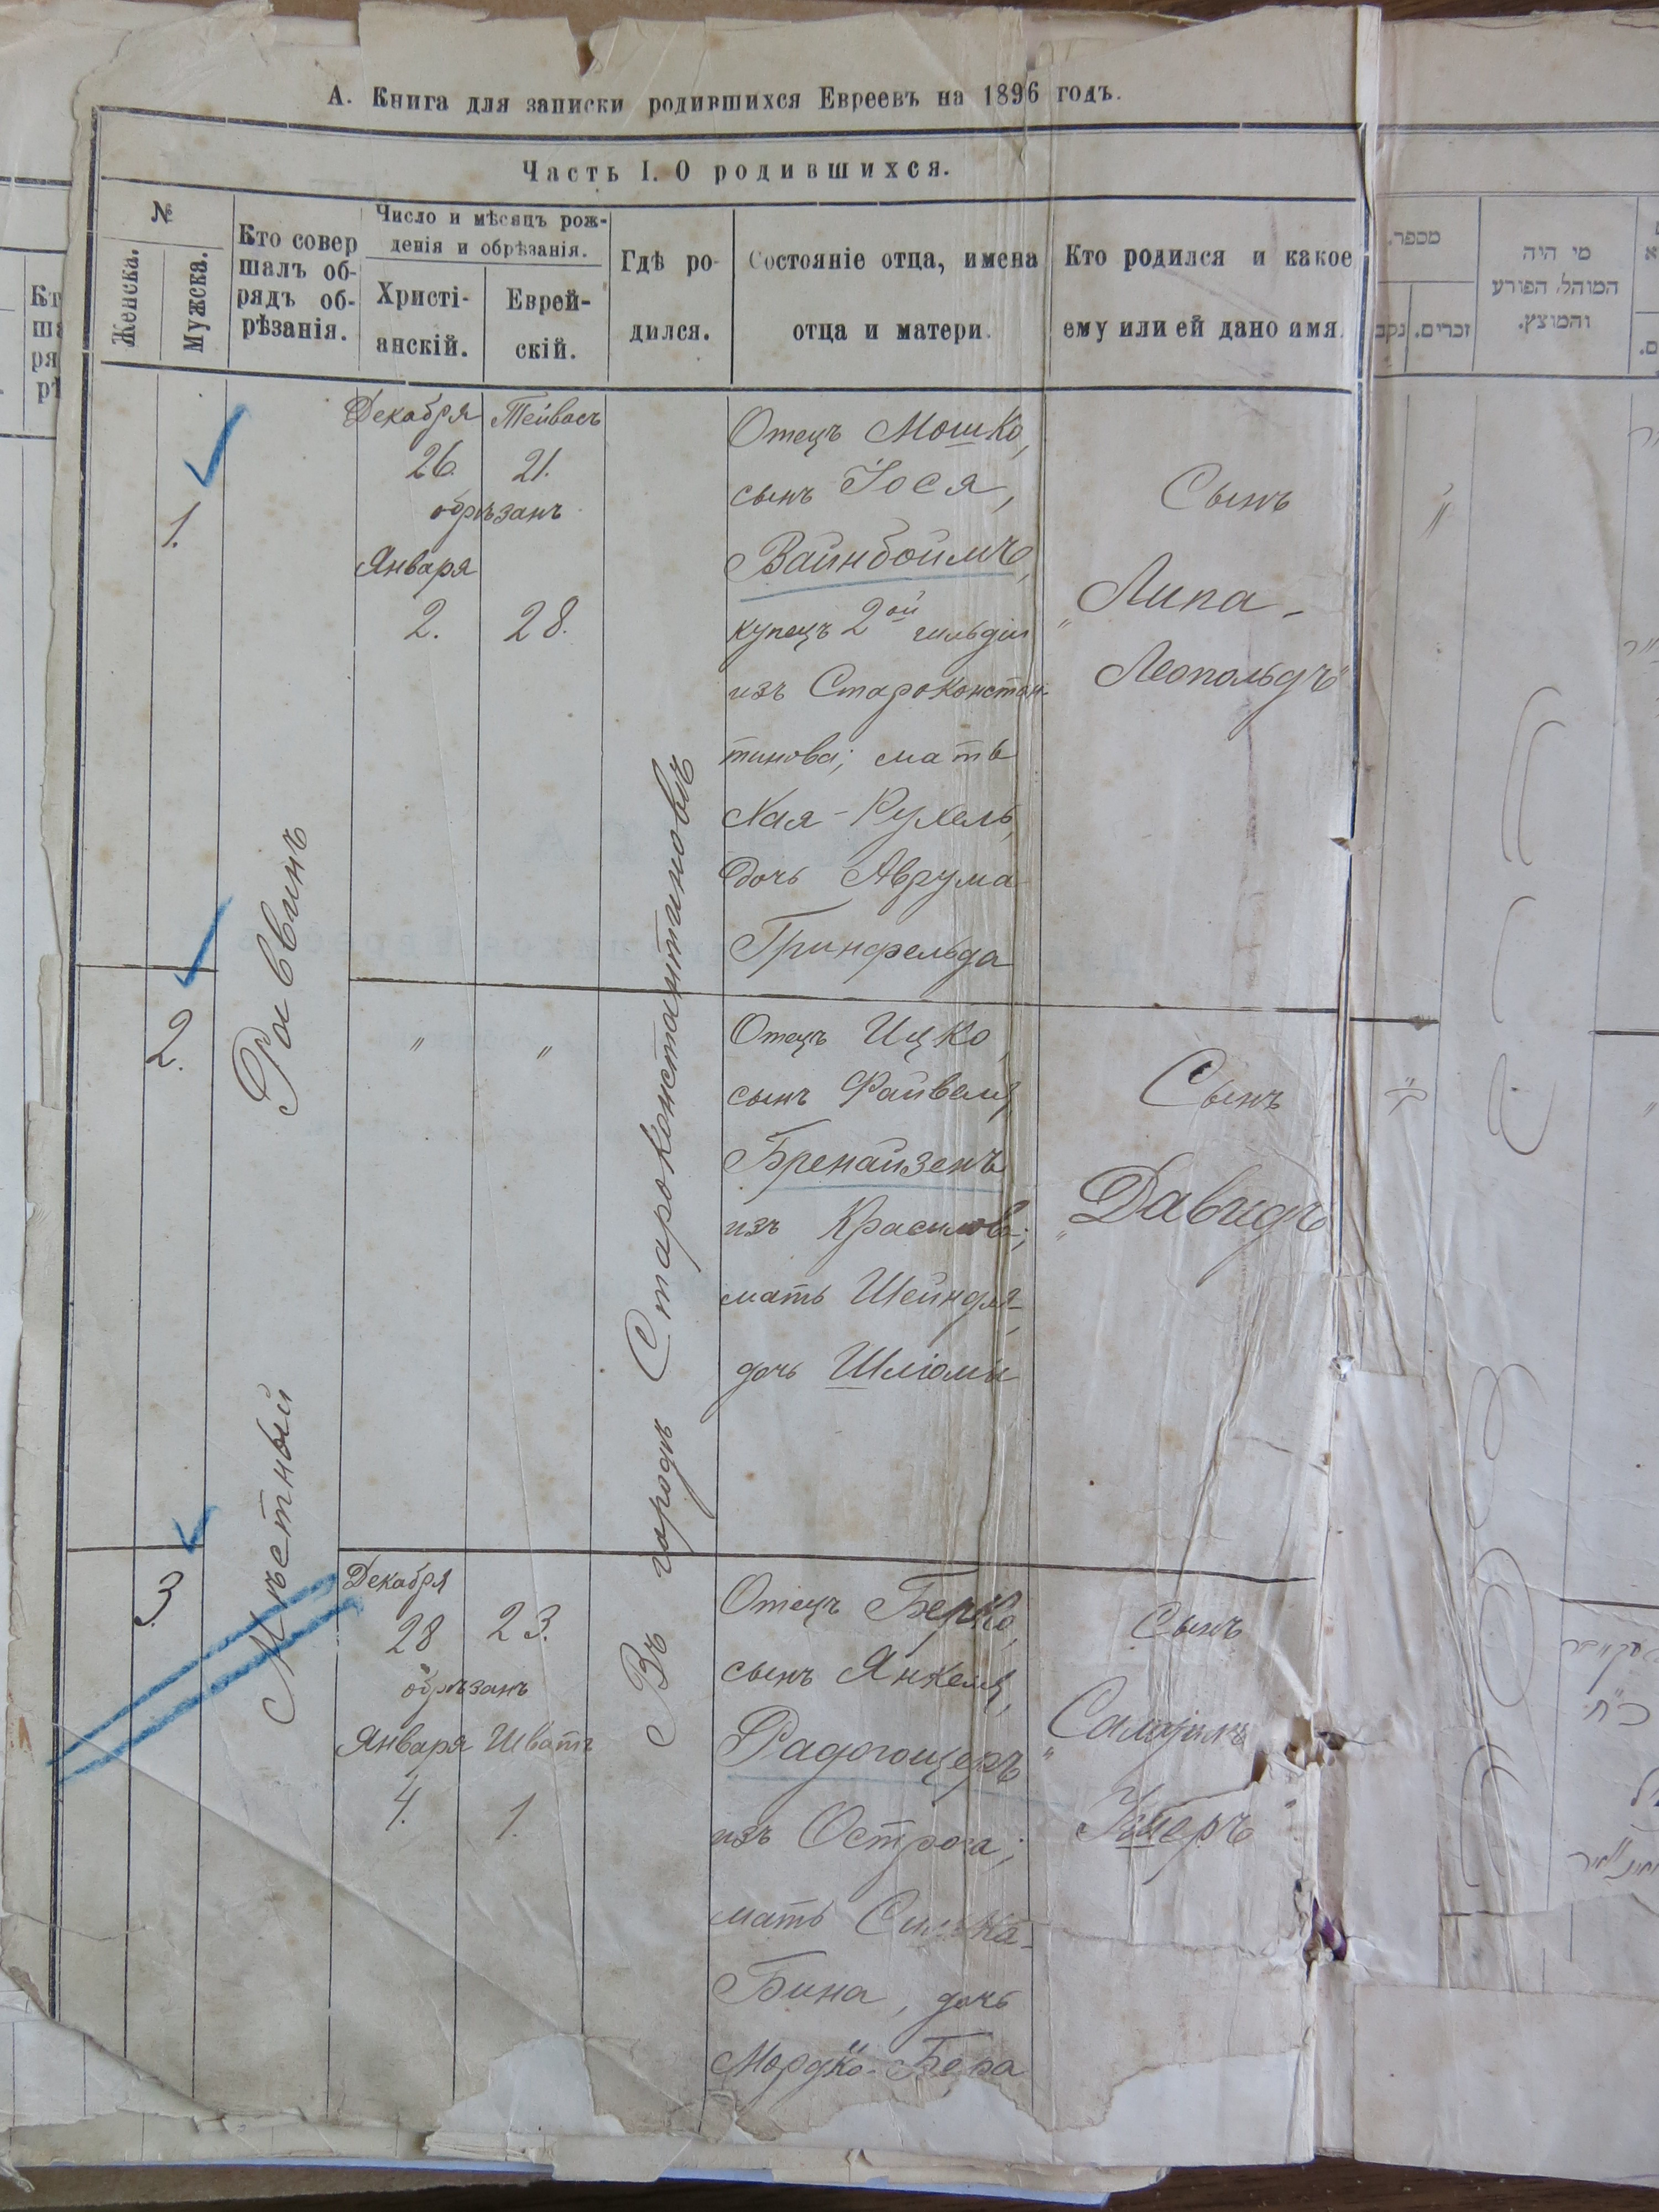 А. Книга для записки родившихся Евреевъ на 1896 годъ.
Часть I. О родившихся.
№
Женска.
Мужска.
Кто совер
шалъ об-
рядъ об-
рѣзанія.
Число и мѣсяцъ рож-
денія и обрѣзанія.
Христі-
анскій.
Еврей-
скій.
Гдѣ ро-
дился.
Состояніе отца, имена
отца и матери.
Кто родился и какое
ему или ей дано имя.
מספר.
זכרים.
נקב
מי היה
המוהל, הפורע
והמוצץ.
Мѣстный Раввинъ
Въ городѣ Староконстантиновѣ
1.
Декабря Тейвасъ
26. 21.
обрѣзанъ
Января
2. 28.
Отецъ Мошко,
сынъ Іося,
Вайнбоймъ,
купецъ 2ой гильдіи
изъ Староконстан-
тинова; мать
Хая-Рухель,
дочь Аврума
Гринфельда
Сынъ
„Липа-
Леопольдъ“
2.
" "
Отецъ Ицко,
сынъ Файвеля,
Бренайзенъ
изъ Красилова;
мать Шейндля,
дочь Шліомы
Сынъ
„Давидъ
3.
Декабря
28 23.
обрѣзанъ
Января Шватъ
4. 1.
Отецъ Берко,
сынъ Янкеля,
Радогощеръ
изъ Острога;
мать
Бина, дочь
Мордко-Бера
Сынъ